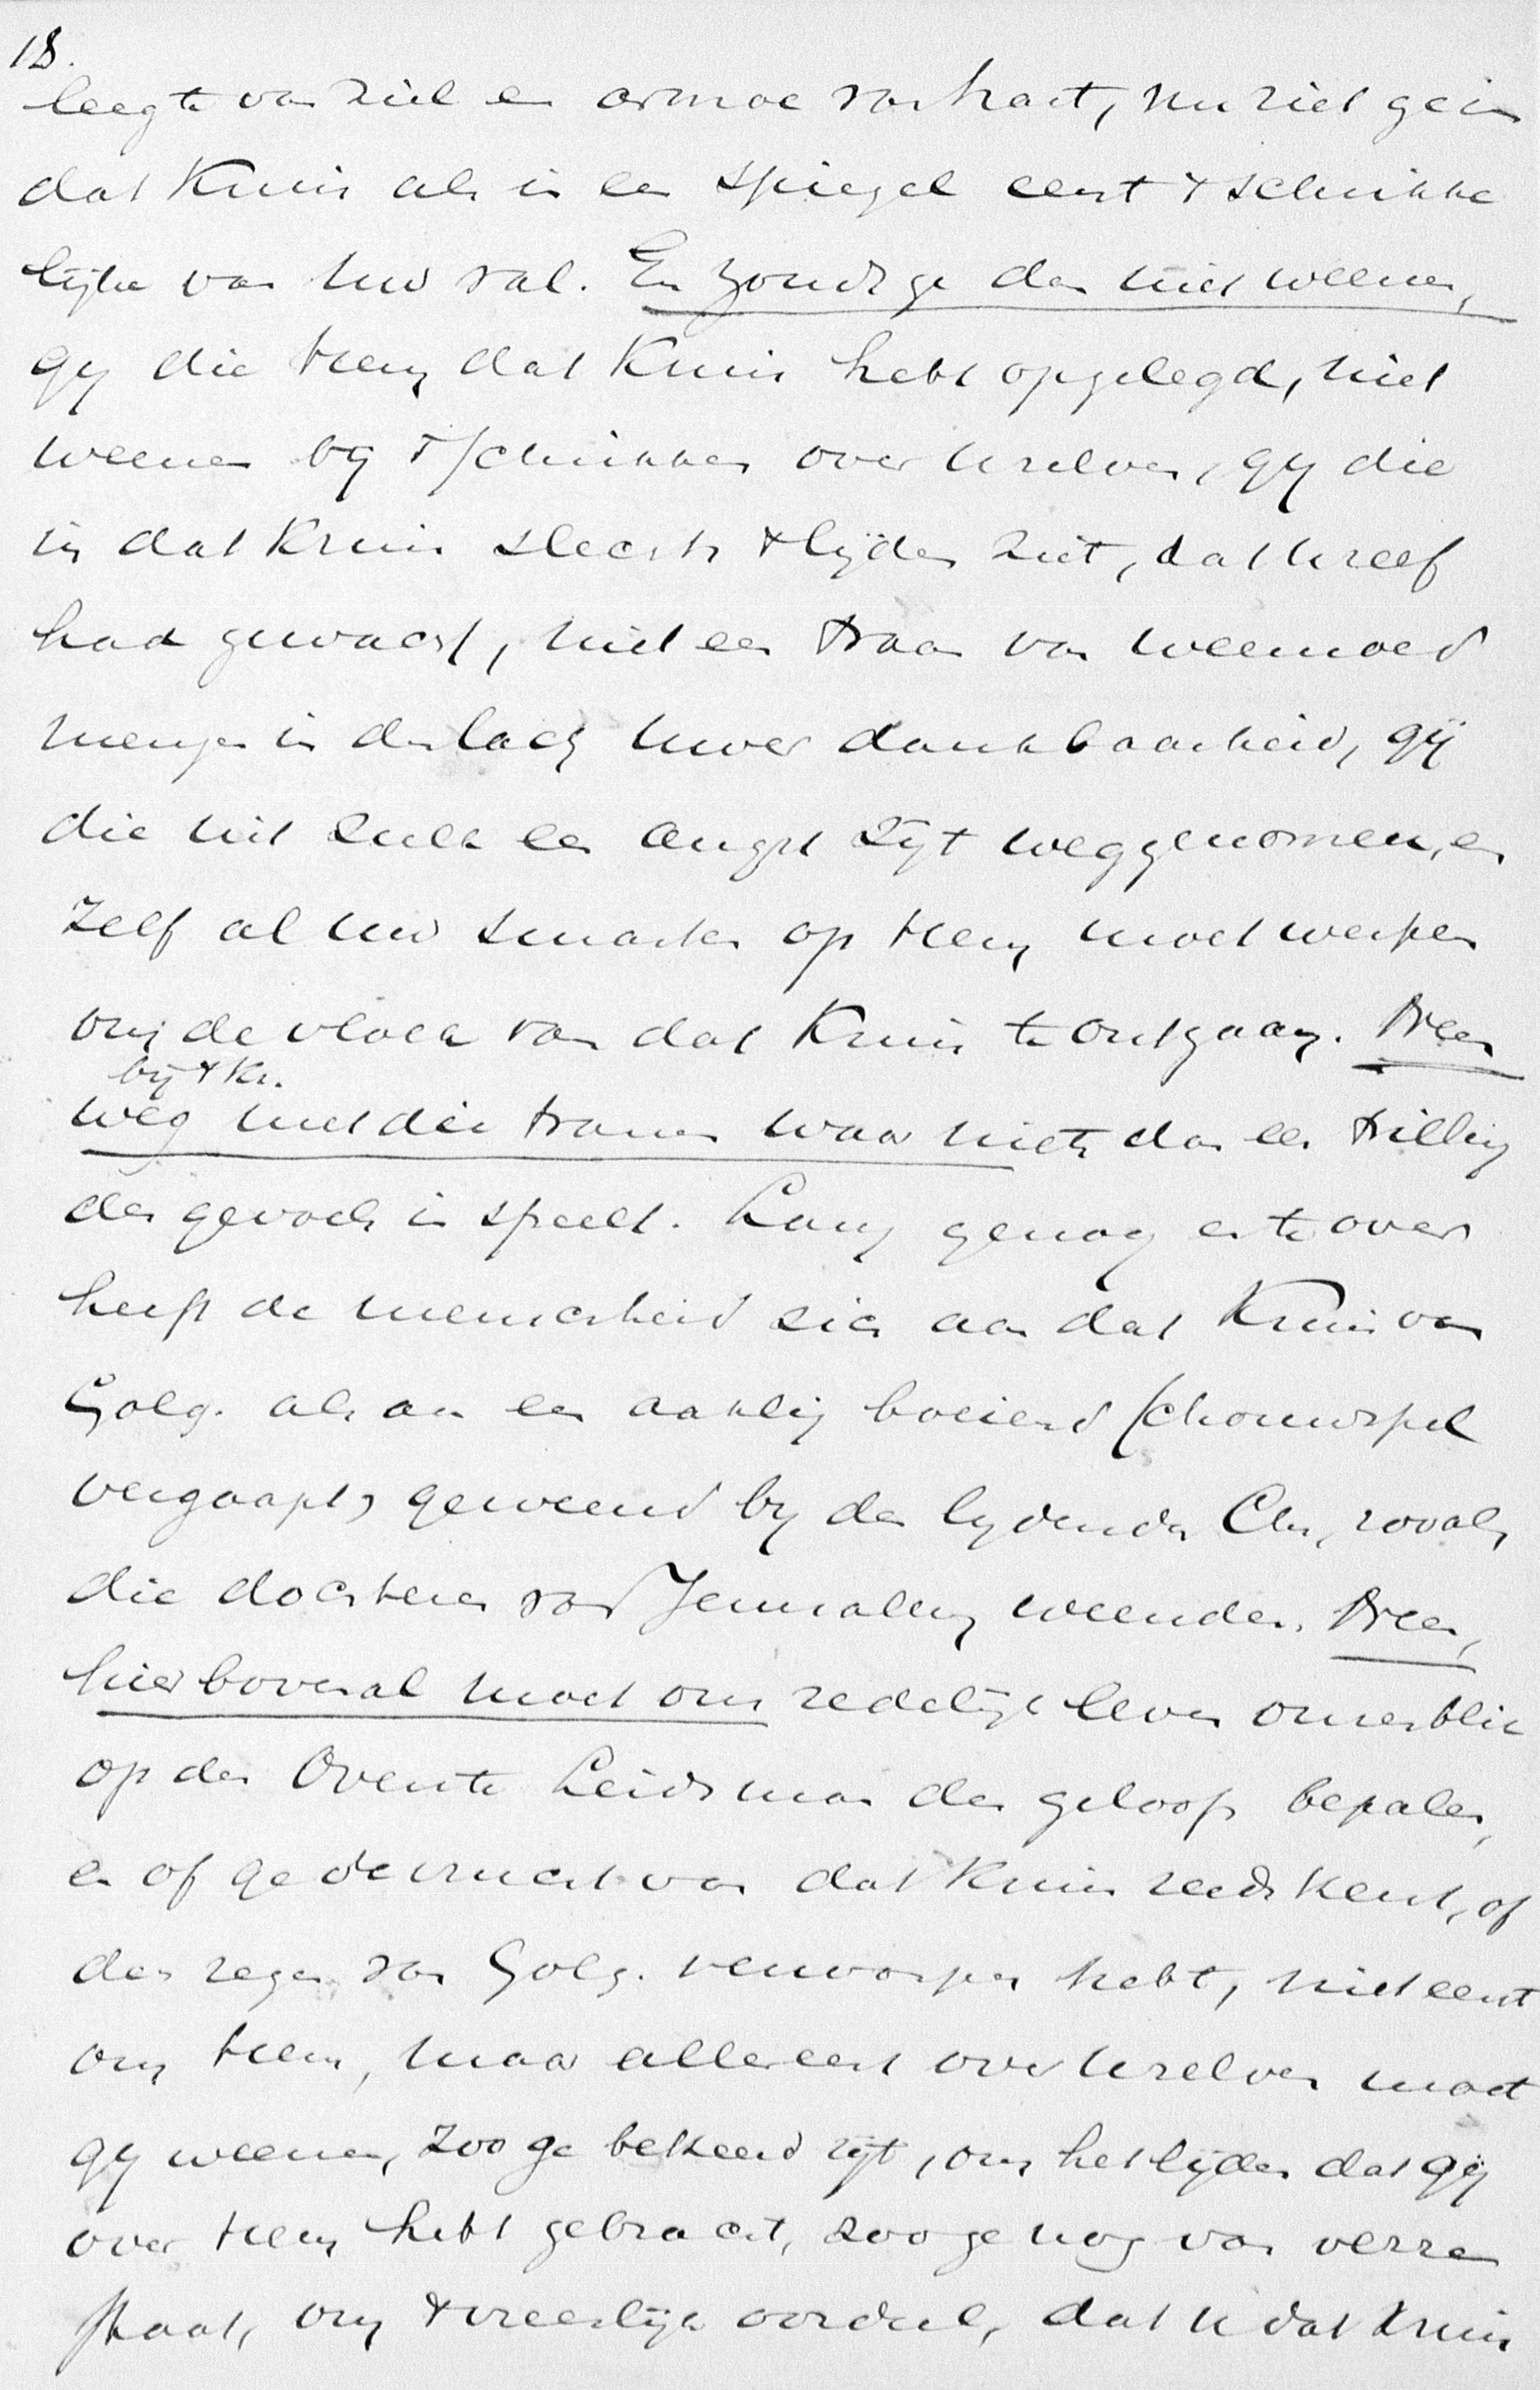 18.
leegte van ziel en armoe van hart, nu ziet ge in
dat Kruis als in een spiegel eerst 't schrikke
lijke van uw val. En zoudt ge dan niet weenen,
gij die Hem dat Kruis hebt opgelegd, niet
weenen bij 't schrikken over uzelven, gij die
in dat Kruis slechts 't lijden ziet, dat u zelf
had gewacht, niet een traan van weemoed
mengen in den lach uwer dankbaarheid, gij
die uit zulk een angst zijt weggenomen, en
zelf al uw smarten op Hem moet werpen
om de vloek van dat Kruis te ontgaan. Neen
bij 't Kr.
weg met die tranen waar niets dan een trilling
des gevoels in speelt. Lang genoeg en te over
heeft de menschheid zich aan dat Kruis van
Golg. als aan een aaklig boeiend schouwspel
vergaapt, geweend bij den lijdenden Chr, zooals
die dochteren van Jerusalem weenden. Neen,
hier bovenal moet ons redelijk leven onzen blik
op den Oversten Leidsman des geloofs bepalen,
en of ge de vrucht van dat Kruis reeds kent, of
den zegen van Golg. verworpen hebt, niet eerst
om Hem, maar allereerst over uzelven moet
gij weenen, zoo ge bekeerd zijt, om het lijden dat gij
over Hem hebt gebracht, zoo ge nog van verre
staat, om 't vreeslijk oordeel, dat u dat Kruis